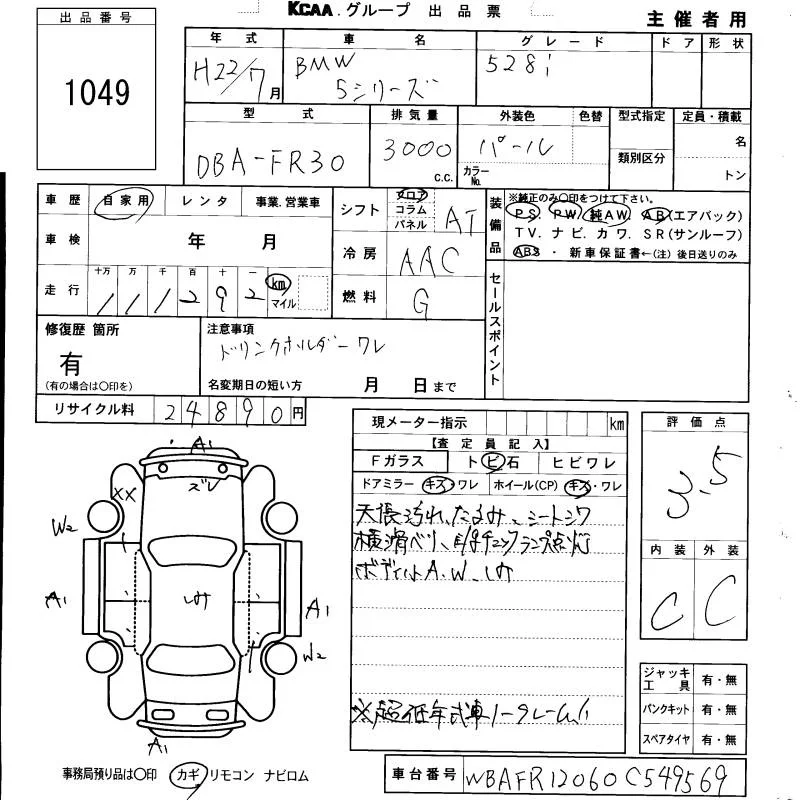 KCAA.グループ 出品票
主催者用
出品番号
1049
年式 車名 グレード ドア 形状
H22/7月 BMW 5シリーズ 528i
型式 排気量 外装色 色替 型式指定 定員・積載
DBA-FR30 3000 C.C. パール カラーNo. 類別区分 名 トン
車歴 自家用 レンタ 事業.営業車
車検 年 月
走行 十万 万 千 百 十 一
111292 km マイル
シフト フロア コラム パネル AT
冷房 AAC
燃料 G
装備品 ※純正のみ○印をつけて下さい。
PS PW 純AW AB(エアバック)
TV. ナビ. カワ. SR(サンルーフ)
ABS ・ 新車保証書←(注)後日送りのみ
セールスポイント
修復歴 箇所
有
(有の場合は○印を)
注意事項
ドリンクホルダーワレ
名変期日の短い方 月 日まで
リサイクル料 24890円
現メーター指示 km
【査定員記入】
Fガラス ト ビ 石 ヒビワレ
ドアミラー キズ・ワレ ホイール(CP) キズ・ワレ
天張汚れ、たるみ、シートシワ
横滑ベリ、E/gチェックランプ点灯
ボディーA.W.凹
※超低年式車ノークレーム
評価点
3.5
内装 外装
C C
ジャッキ工具 有・無
パンクキット 有・無
スペアタイヤ 有・無
A1
ズレ
XX
W2
A1
A1
W2
A1
事務局預り品は○印 カギ リモコン ナビロム
車台番号 WBAFR12060C549569